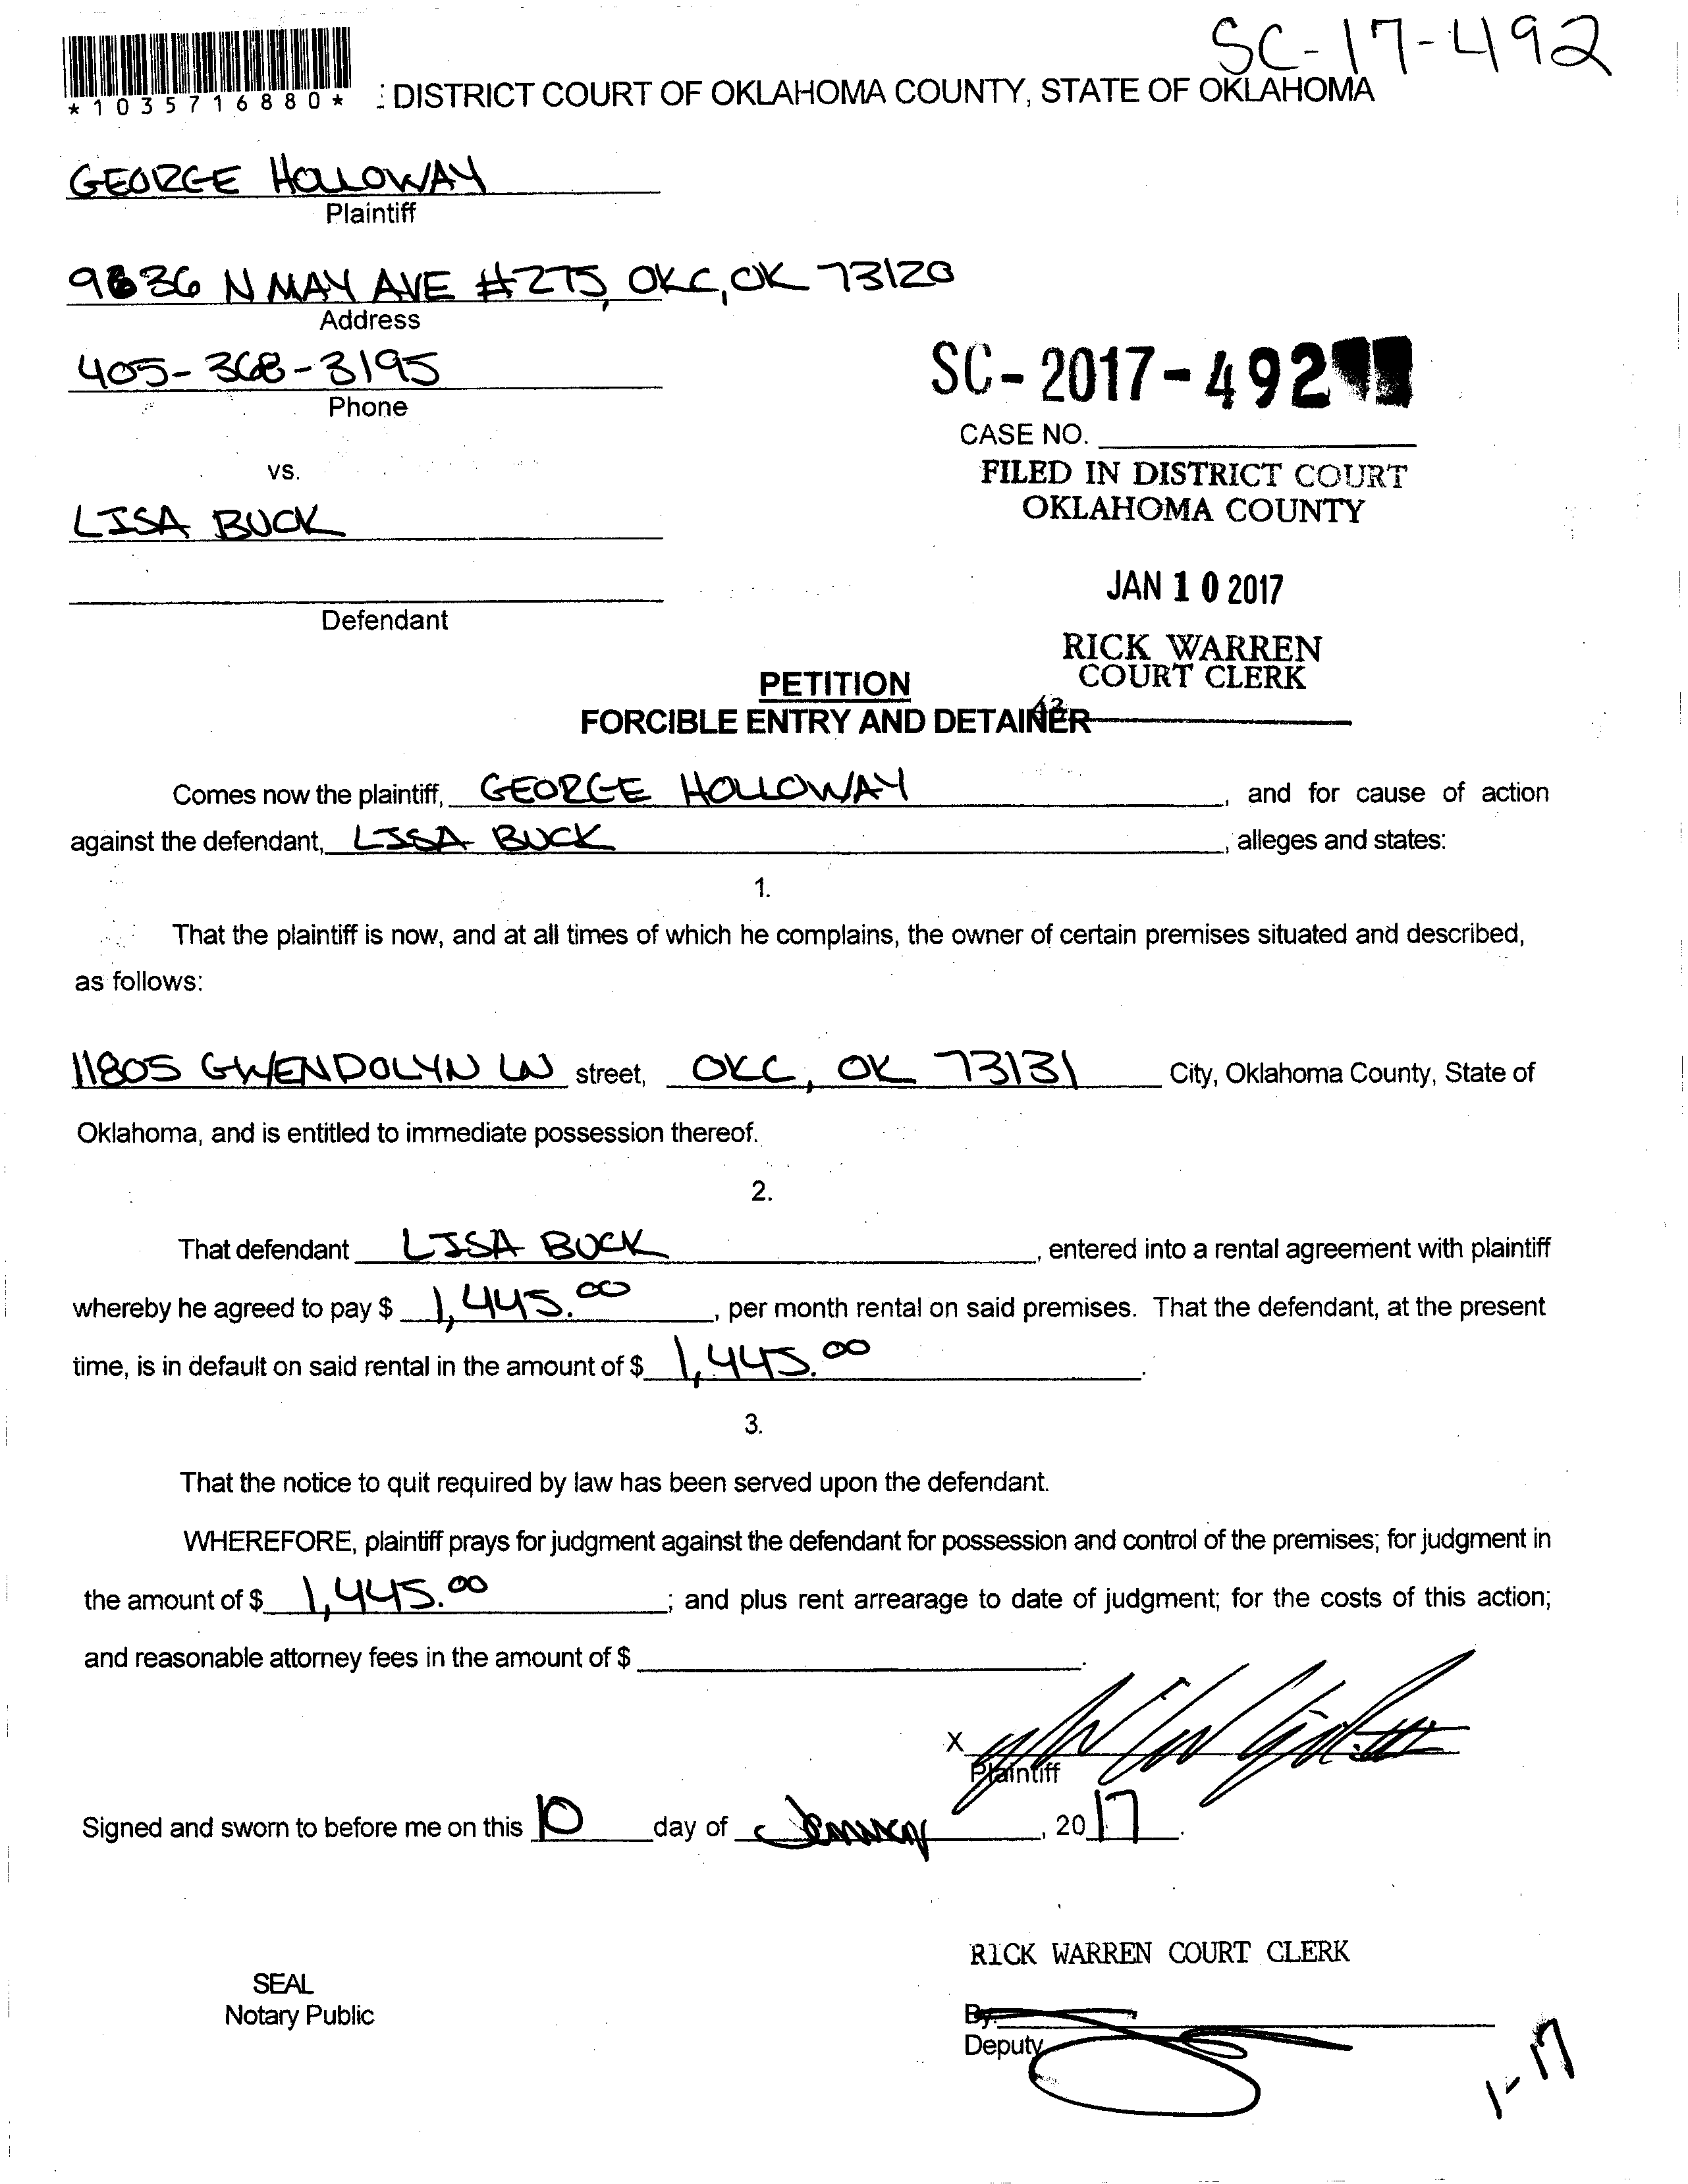 SC-17-492
*1035716880*
: DISTRICT COURT OF OKLAHOMA COUNTY, STATE OF OKLAHOMA
GEORGE HOLLOWAY
Plaintiff
N MAY AVE #275, OKC, OK 73120
Address
405-368-3195
Phone
SC-2017-492
CASE NO.
vs.
FILED IN DISTRICT COURT
OKLAHOMA COUNTY
LISA BUCK
JAN 10 2017
Defendant
RICK WARREN
COURT CLERK
PETITION
FORCIBLE ENTRY AND DETAINER
Comes now the plaintiff, GEORGE HOLLOWAY, and for cause of action
against the defendant, LISA BUCK, alleges and states:
1.
That the plaintiff is now, and at all times of which he complains, the owner of certain premises situated and described,
as follows:
11805 GWENDOLYN LN street, OKC, OK 73131 City, Oklahoma County, State of
Oklahoma, and is entitled to immediate possession thereof.
2.
That defendant LISA BUCK, entered into a rental agreement with plaintiff
whereby he agreed to pay $ 1,445.00, per month rental on said premises. That the defendant, at the present
time, is in default on said rental in the amount of $ 1,445.00.
3.
That the notice to quit required by law has been served upon the defendant.
WHEREFORE, plaintiff prays for judgment against the defendant for possession and control of the premises; for judgment in
the amount of $ 1,445.00; and plus rent arrearage to date of judgment; for the costs of this action;
and reasonable attorney fees in the amount of $ .
X
Plaintiff
Signed and sworn to before me on this 10 day of January, 2017.
RICK WARREN COURT CLERK
SEAL
Notary Public
By:
Deputy
1-17